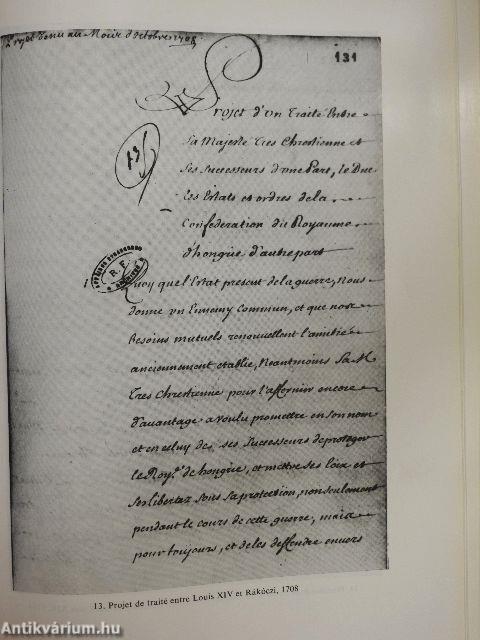 Projet Venu au Mois d'octobre 1708
131
13
Projet d'un Traité Entre
Sa Majesté Tres Chrestienne et
ses Successeurs d'une Part, le Duc
les Estats et ordres de la
Confederation du Royaume
d'hongrie d'autre part
R.F.
Quoy quel Estat present de la guerre, Nous
donne un Ennemy Commun, et que nos
besoins mutuels renouvellent l'amitié
anciennement etablie, Neantmoins Sa M.
Tres Chrestienne pour l'affermir encore
d'avantage a voulu promettre en son nom
et en celuy de ses Successeurs de proteger
le Roye. de hongrie, et mettre ses loix et
ses libertez sous sa protection, non seulement
pendant le cours de cette guerre, mais
pour toujours, et de les deffendre envers
13. Projet de traité entre Louis XIV et Rákóczi, 1708
Antikvárium.hu